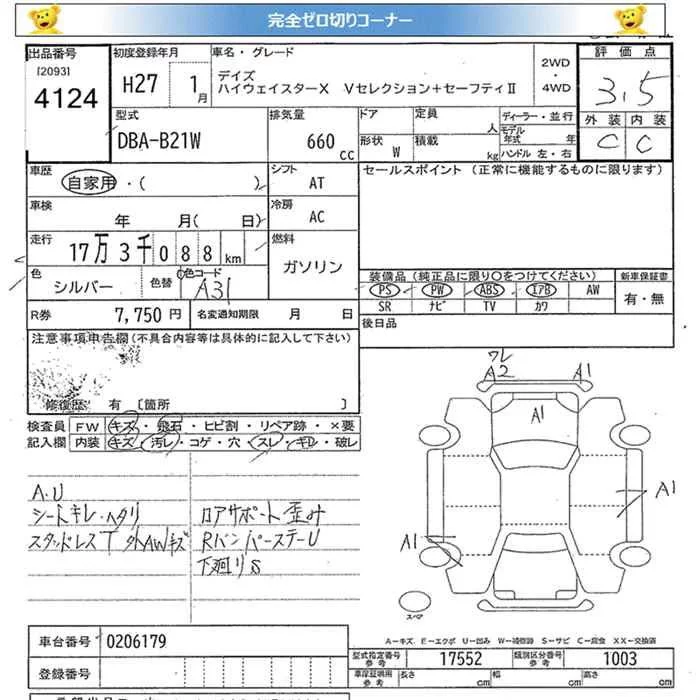 完全ゼロ切りコーナー
出品番号 初度登録年月 車名・グレード 評価点
[2093] 4124 H27 1月 デイズ 2WD・4WD 3.5
ハイウェイスターX Vセレクション+セーフティⅡ
外装 内装
C C
型式 排気量 ドア 定員 ディーラー・並行
DBA-B21W 660cc 人 モデル年式 年
形状 W 積載 kg ハンドル 左・右
車歴 シフト セールスポイント (正常に機能するものに限ります)
自家用・( ) AT
車検 冷房
年 月( 日) AC
走行 燃料
17万3千088km ガソリン
色 色替 色コード 装備品 (純正品に限り〇をつけてください) 新車保証書
シルバー A31 PS PW ABS エアB AW 有・無
SR ナビ TV カワ
R券 7,750円 名変通知期限 月 日 後日品
注意事項申告欄(不具合内容等は具体的に記入して下さい)
修復歴 有 [箇所 ]
検査員 FW キズ・飛石・ヒビ割・リペア跡・×要
記入欄 内装 キズ・汚レ・コゲ・穴・スレ・キレ・破レ
ワレ
A2 A1
A1
A1
A1
A.U
シートキレ・ヘタリ ロアサポート歪み
スタッドレスT 外AWキズ RバンパーステーU
下廻りS
スペア
A-キズ E-エクボ U-凹み W-補修跡 S-サビ C-腐食 XX-交換済
車台番号 0206179 型式指定番号 参考 17552 類別区分番号 参考 1003
登録番号 車庫証明用 参考 長さ cm 幅 cm 高さ cm